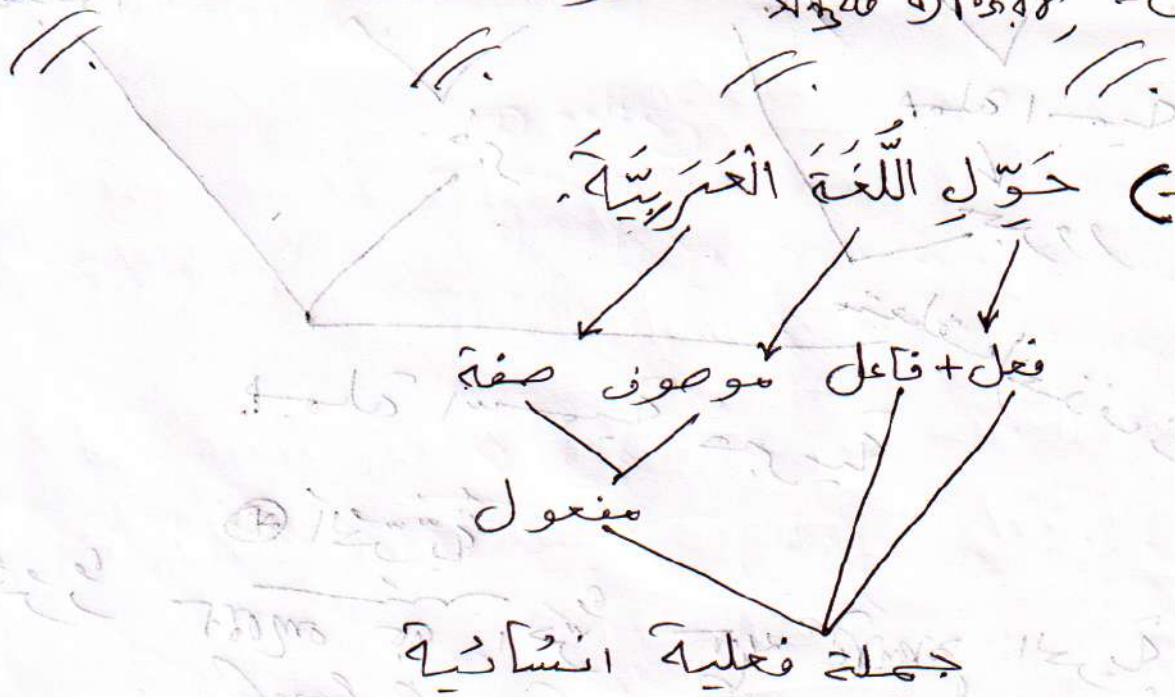 حَوِّلِ اللُّغَةَ الْعَرَبِيَّةَ.
فعل + فاعل موصوف صفة
مفعول
جملة فعلية انشائية